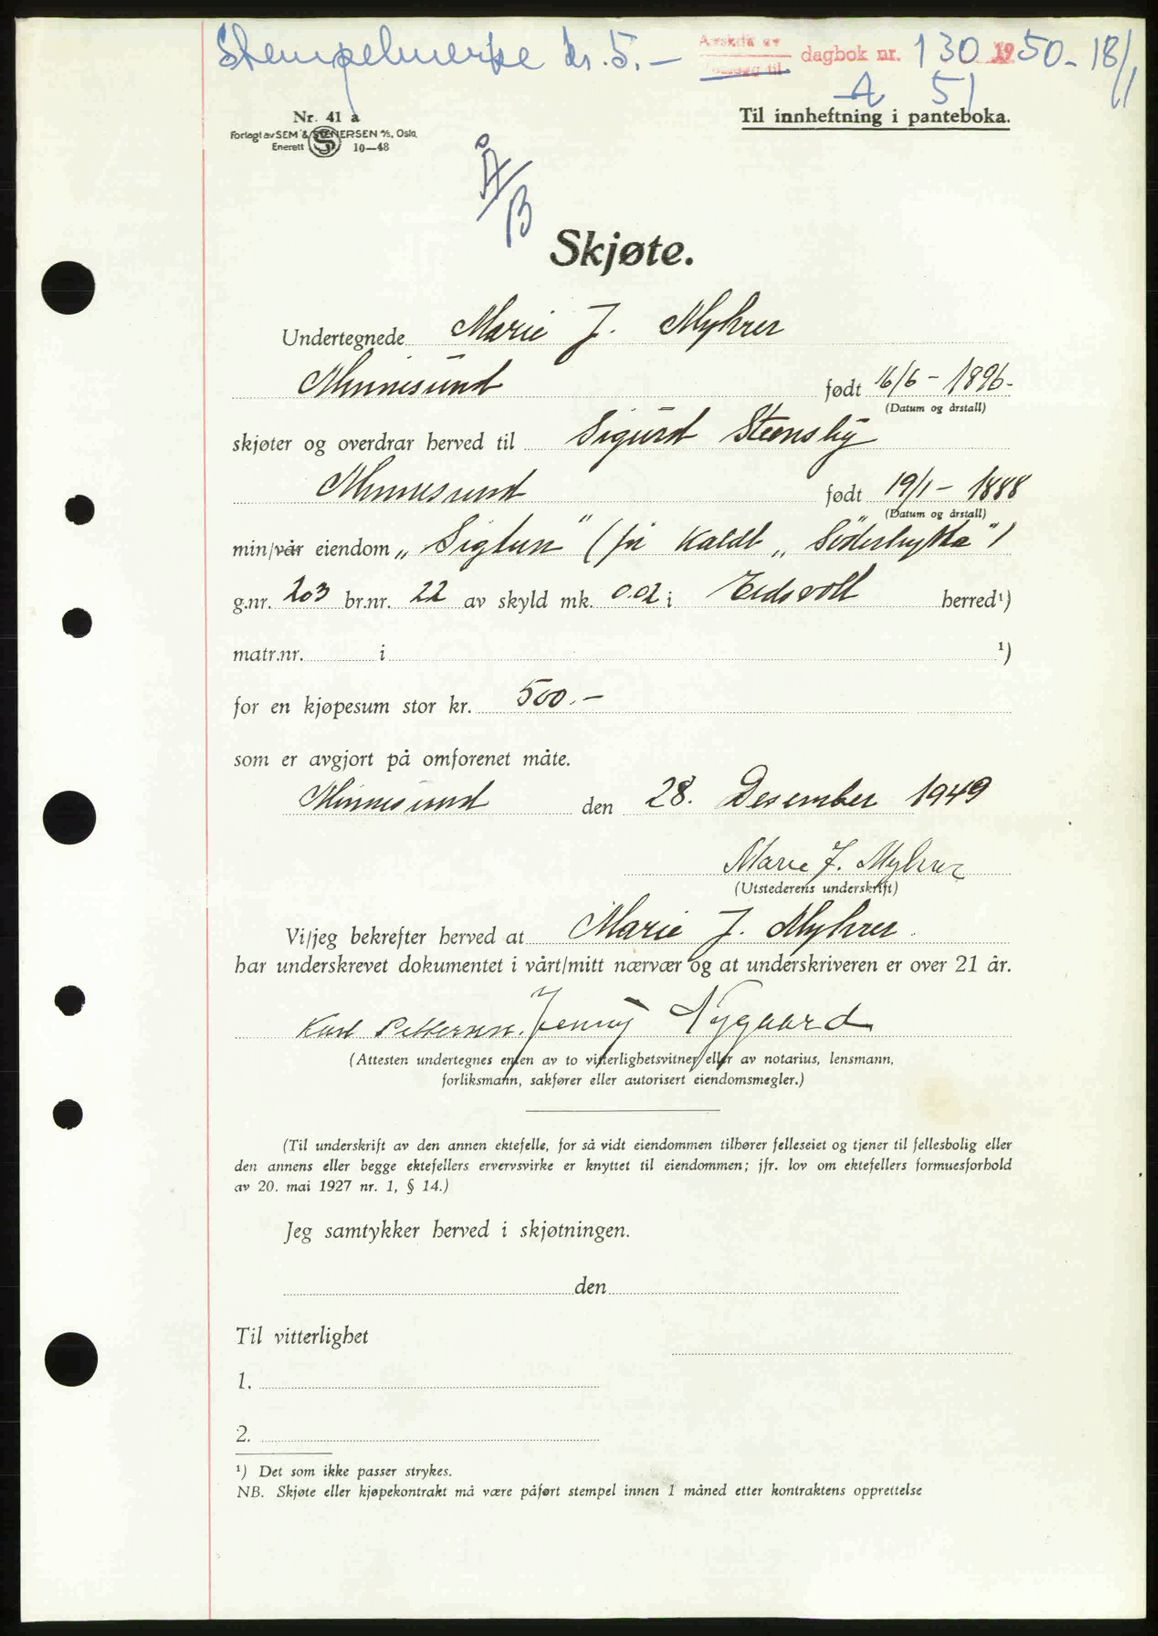 Stempelmerke kr. 5.-
Avskrift av
dagbok nr. 130 1950 - 18/1
A 51
Nr. 41 a
Forlagt av SEM & STENERSEN A/S, Oslo.
Enerett 10-48
Til innheftning i panteboka.
Å/B
Skjøte.
Undertegnede Marie J. Myhrer
Minnesund født 16/6 - 1896.
(Datum og årstall)
skjøter og overdrar herved til Sigurd Steensby
Minnesund født 19/1 - 1888
(Datum og årstall)
min/vår eiendom „Sigtun" (før kaldt „Söderhytta")
g.nr. 203 br.nr. 22 av skyld mk. 0.02 i Eidsvoll herred¹)
matr.nr. i ¹)
for en kjøpesum stor kr. 500.-
som er avgjort på omforenet måte.
Minnesund den 28. Desember 1949
Marie J. Myhrer
(Utstederens underskrift)
Vi/jeg bekrefter herved at Marie J. Myhrer.
har underskrevet dokumentet i vårt/mitt nærvær og at underskriveren er over 21 år.
Karl Pettersen. Jenny Nygaard
(Attesten undertegnes enten av to vitterlighetsvitner eller av notarius, lensmann,
forliksmann, sakfører eller autorisert eiendomsmegler.)
(Til underskrift av den annen ektefelle, for så vidt eiendommen tilhører felleseiet og tjener til fellesbolig eller
den annens eller begge ektefellers ervervsvirke er knyttet til eiendommen; jfr. lov om ektefellers formuesforhold
av 20. mai 1927 nr. 1, § 14.)
Jeg samtykker herved i skjøtningen.
den
Til vitterlighet
1.
2.
¹) Det som ikke passer strykes.
NB. Skjøte eller kjøpekontrakt må være påført stempel innen 1 måned etter kontraktens opprettelse